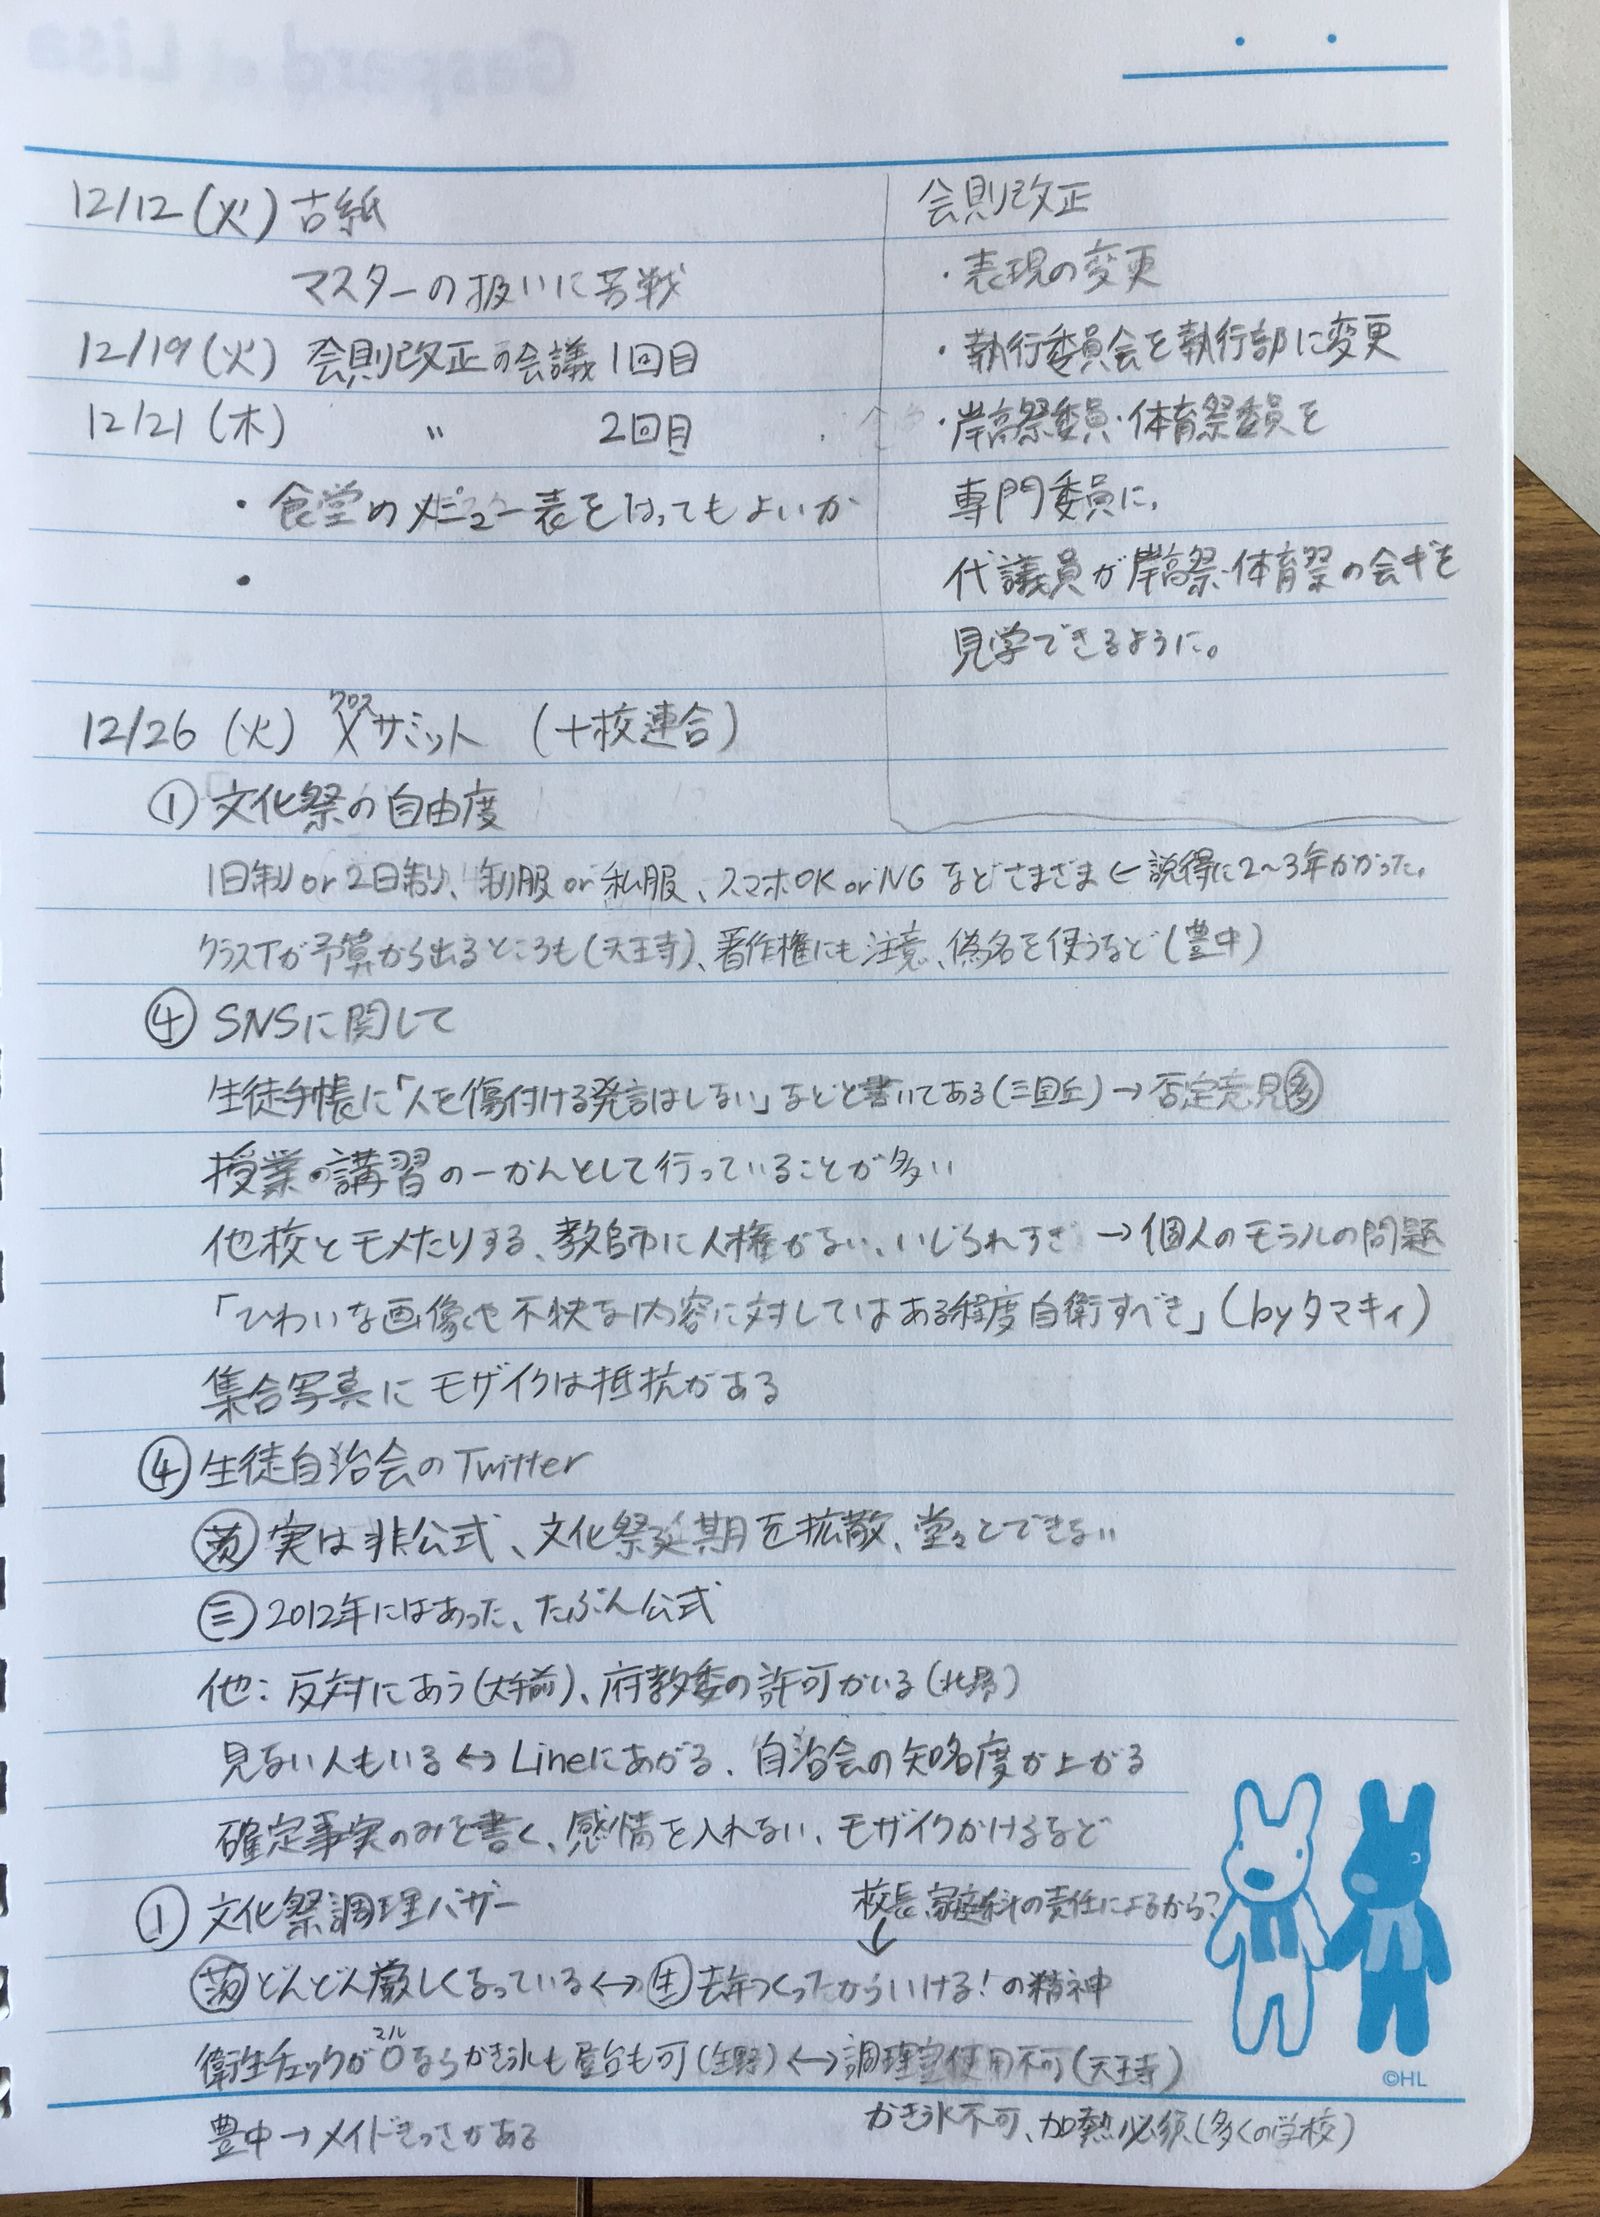 12/12(火) 古紙
マスターの扱いに苦戦
12/19(火) 会則改正の会議1回目
12/21(木) 〃 2回目
・食堂のメニュー表をはってもよいか
・
会則改正
・表現の変更
・執行委員会を執行部に変更
・岸高祭委員・体育祭委員を
専門委員に。
代議員が岸高祭・体育祭の会ギを
見学できるように。
12/26 (火) Xサミット (十校連合)
クロス
① 文化祭の自由度
1日制or2日制、制服or私服、スマホOKorNGなどさまざま←説得に2〜3年かかった。
クラスTが予算から出るところも(天王寺)、著作権にも注意、偽名を使うなど(豊中)
④ SNSに関して
生徒手帳に「人を傷付ける発言はしない」などと書いてある(三国丘)→否定意見多
授業の講習の一かんとして行っていることが多い
他校とモメたりする、教師に人権がない、いじられすぎ→個人のモラルの問題
「ひわいな画像や不快な内容に対してはある程度自衛すべき」(byタマキィ)
集合写真にモザイクは抵抗がある
④ 生徒自治会のTwitter
茨 実は非公式、文化祭延期を拡散、堂々とできない
三 2012年にはあった、たぶん公式
他:反対にあう(大手前)、府教委の許可がいる(北野)
見ない人もいる↔Lineにあがる、自治会の知名度が上がる
確定事実のみを書く、感情を入れない、モザイクかけるなど
① 文化祭調理バザー
校長、家庭科の責任によるから?
↓
茨 どんどん厳しくなっている↔生 去年つくったからいける!の精神
衛生チェックが○ならかき氷も屋台も可(生野)↔調理室使用不可(天王寺)
マル
豊中→メイドきっさがある
かき氷不可、加熱必須(多くの学校)
©HL